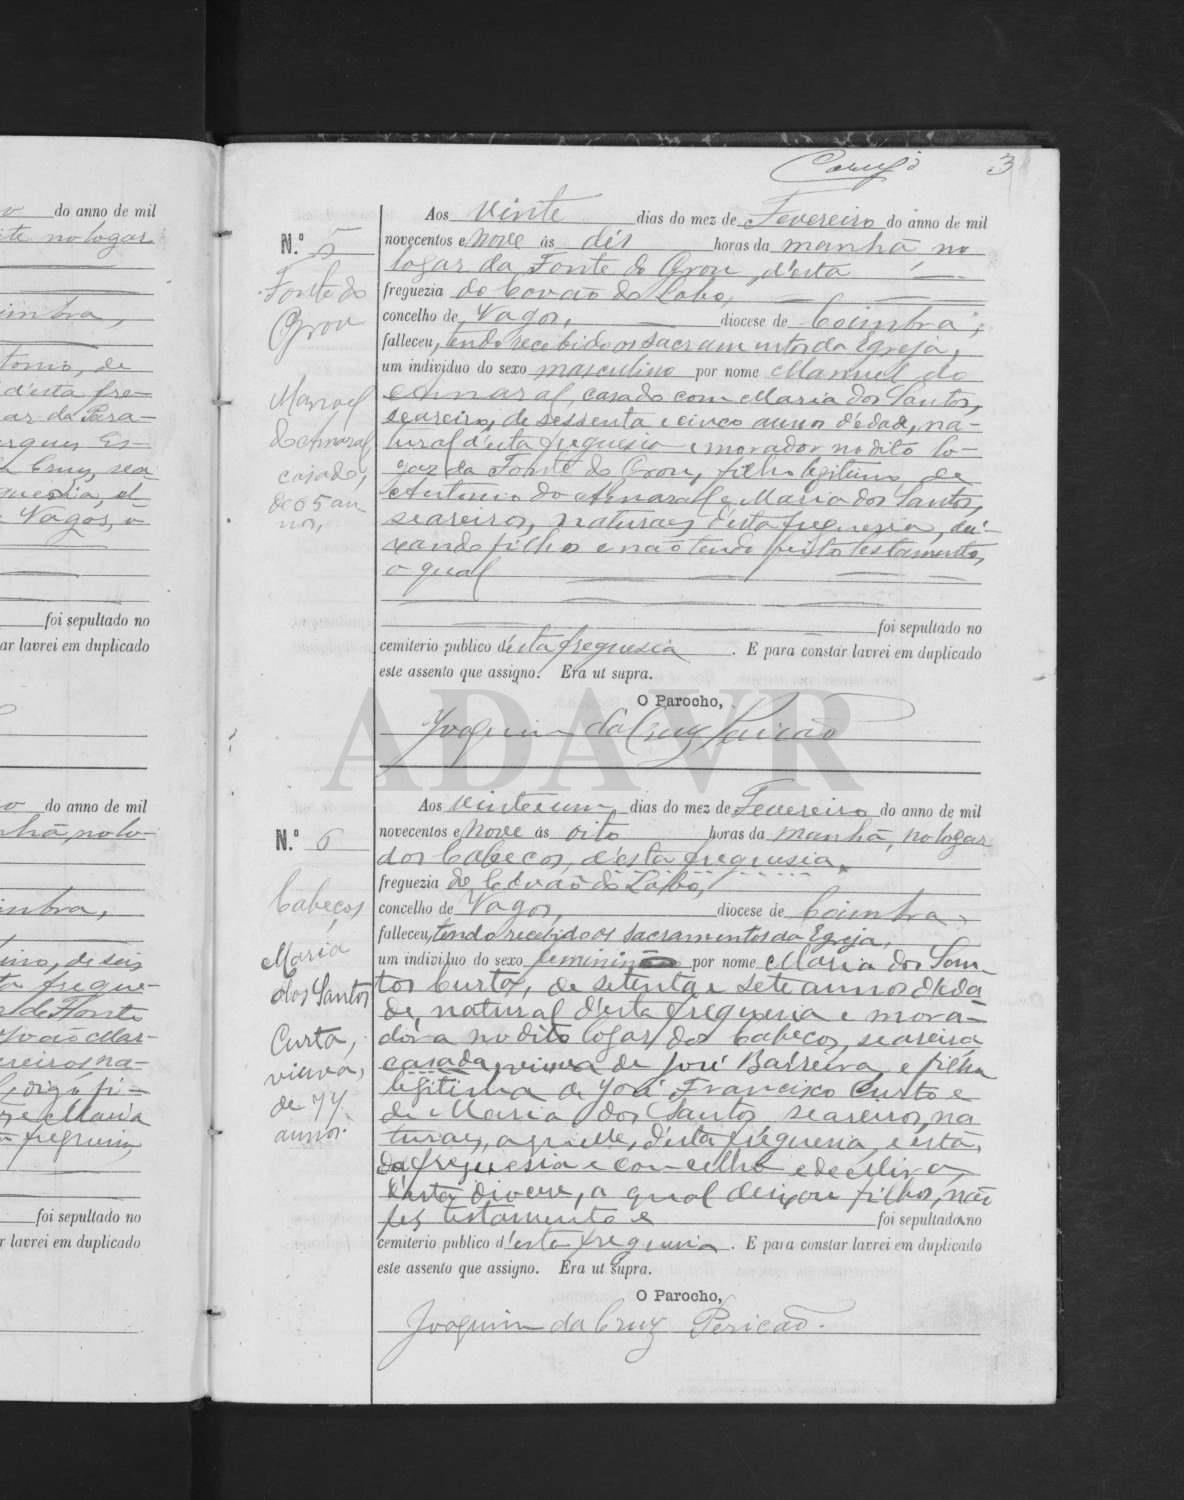 3
Aos vinte dias do mez de Fevereiro do anno de mil
N.º 5
novecentos e nove ás dés horas da manhã, no
logar da Fonte do Grou, d'esta
Fonte do
Grou
freguezia do Covão do Lobo,
concelho de Vagos, diocese de Coimbra,
falleceu, tendo recebido os sacramentos da Egreja,
um individuo do sexo masculino por nome Manuel do
Amaral, casado com Maria dos Santos,
seareiro, de sessenta e cinco annos d'edade, na-
tural d'esta freguesia e morador no dito lo-
gar da Fonte do Grou, filho legitimo de
Antonio do Amaral e Maria dos Santos,
seareiros, naturaes d'esta freguesia, dei-
xando filhos e não tendo feito testamento,
o qual
Manoel
do Amaral
casado,
de 65 an-
nos,
foi sepultado no
cemiterio publico d'esta freguesia. E para constar lavrei em duplicado
este assento que assigno. Era ut supra.
O Parocho,
Joaquim da Cruz Pericão
ADAVR
Aos vinte e um dias do mez de Fevereiro do anno de mil
N.º 6
novecentos e nove ás oito horas da manhã, no logar
dos Cabeços, d'esta freguesia
freguezia do Covão do Lobo,
concelho de Vagos, diocese de Coimbra,
falleceu, tendo recebido os sacramentos da Egreja,
um individuo do sexo feminino por nome Maria dos San-
tos Curta, de setenta e sete annos d'eda
de, natural d'esta freguesia e mora-
dora no dito logar dos Cabeços, seareira
casada, viuva de José Barreira, e filha
legitima de José Francisco Curto e
de Maria dos Santos, seareiros, na
turaes, aquelle, d'esta freguesia, e esta,
da freguesia e concelho e de Mira,
d'esta diocese, a qual deixou filhos, não
fes testamento e foi sepultada no
Cabeços
Maria
dos Santos
Curta,
viuva,
de 77
annos.
cemiterio publico d'esta freguesia. E para constar lavrei em duplicado
este assento que assigno. Era ut supra.
O Parocho,
Joaquim da Cruz Pericão.
do anno de mil
no logar
imbra,
de
d'esta fre-
ar da Pera-
Cruz, sea
Vagos, o
foi sepultado no
ar lavrei em duplicado
do anno de mil
nhã, no lo-
imbra,
de seis
fregue-
Maria
foi sepultado no
r lavrei em duplicado